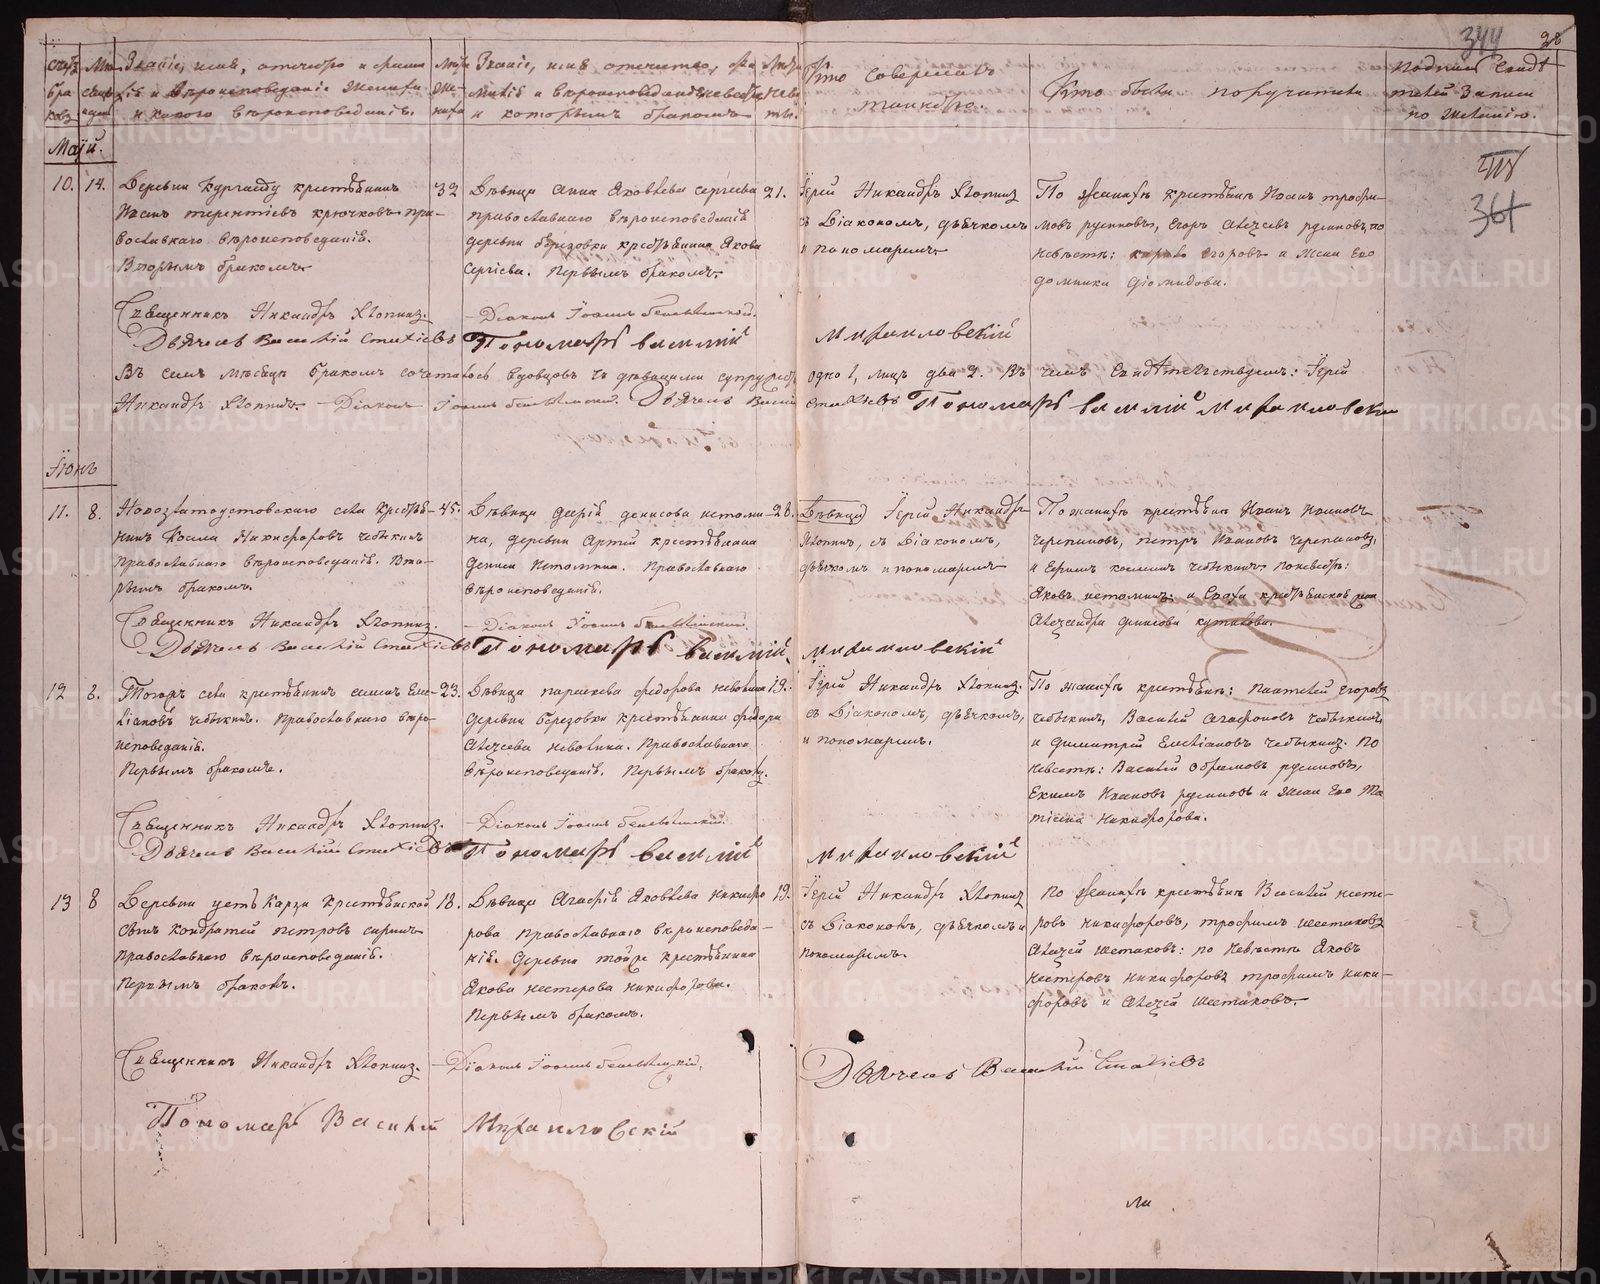 344
28
счетъ браковъ
Мѣсяцъ
Званіе, имя, отечество и фамилія и вѣроисповѣданіе жениха и какого вѣроисповѣданія.
Лѣта жениха
Званіе, имя отечество, фамилія и вѣроисповѣданіе невѣсты и которымъ бракомъ
Лѣта невѣсты.
Кто совершалъ таинство.
Кто были поручители
Подпись свидѣтелей записи по желанію.
Маій.
361
10. 14.
Деревни Кургашу крестьянинъ
Иванъ Терентіевъ Крючковъ пра-
вославнаго вѣроисповеданія.
Вторымъ бракомъ
32
Дѣвица Анна Яковлева Сергіева
православнаго вѣроисповедания
деревни березовки крестьянина Якова
Сергіева. Первымъ бракомъ.
21.
Іерей Никандръ Хлопинъ
съ Діакономъ, дьячкомъ
и пономаремъ
По женихѣ крестьяне Иванъ трофи-
мовъ русиновъ, Егоръ Алексѣевъ русиновъ, по
невѣстѣ: Егоровъ и жена Его
домника Діомидова.
Священникъ Никандръ Хлопинъ.
Діаконъ Іоаннъ
Дьячекъ Василій Статіевъ
Пономарь василій
михаиловскій
Въ семъ мѣсяцѣ бракомъ сочеталось вдовцовъ съ дѣвицами супружествъ
одно 1, лицъ два 2. Въ чемъ свидѣтельствуемъ: Іерей
Никандръ Хлопинъ. Діаконъ Іоаннъ Дьячекъ Василій
Статіевъ Пономарь василій михаиловскій
Іюнь
11. 8.
Новозлатоустовскаго села Крестья-
нинъ Косма Никифоровъ Чебыкинъ
православнаго вѣроисповеданія. Вто-
рымъ бракомъ.
45.
Дѣвица Дарія денисова истоми-
на, деревни Артей крестьянина
Дениса Истомина. Православнаго
вѣроисповеданія.
28.
Дѣвица) Іерей Никандръ
Хлопинъ, съ Діакономъ,
дьячкомъ и пономаремъ
По женихѣ крестьяне Иванъ Ивановъ
Черепановъ, петръ Ивановъ Черепановъ,
и Ефимъ косминъ чебыкинъ. По невѣстѣ:
Яковъ истоминъ и крестьянская жена
Александра денисова
Священникъ Никандръ Хлопинъ.
Діаконъ Іоаннъ
Дьячекъ Василій Статіевъ
Пономарь василій
михаиловскій
12 8.
Тогожъ села крестьянинъ симонъ Еме-
ліановъ чебыкинъ. Православнаго вѣро-
исповеданія.
Первымъ бракомъ.
23.
Дѣвица параскева федорова неволина
деревни березовки крестьянина федора
Алексѣева неволина. Православнаго
вѣроисповеданія. Первымъ бракомъ.
19.
Іерей Никандръ Хлопинъ.
съ Діакономъ, дьячкомъ,
и пономаремъ.
По женихѣ крестьяне: Пантелей Егоровъ
чебыкинъ, Василій Агафоновъ чебыкинъ
и Димитрій Емеліановъ чебыкинъ. По
невѣстѣ: Василій Ефремовъ русиновъ,
Екимъ Ивановъ русиновъ и жена Его Та-
тіана Никифорова.
Священникъ Никандръ Хлопинъ.
Діаконъ Іоаннъ
Дьячекъ Василій Статіевъ
Пономарь василій
михаиловскій
13 8
Деревни усть Карзи Крестьянской
сынъ Кондратей Петровъ
православнаго вѣроисповеданія.
Первымъ бракомъ.
18.
Дѣвица Агафія Яковлева Никифо-
рова православнаго вѣроисповеда-
нія. Деревни тойже крестьянина
Якова нестерова никифорова.
Первымъ бракомъ.
19.
Іерей Никандръ Хлопинъ
съ Діакономъ, дьячкомъ и
пономаремъ.
По женихѣ крестьяне Василій несте-
ровъ никифоровъ, трофимъ шестаковъ
Алексѣй шестаковъ: по Невѣстѣ Яковъ
нестеровъ никифоровъ трофимъ ники-
форовъ и Алексѣй шестаковъ.
Священникъ Никандръ Хлопинъ.
Діаконъ Іоаннъ
Дьячекъ Василій Статіевъ
Пономарь Василій Михаиловскій
METRIKI.GASO-URAL.RU